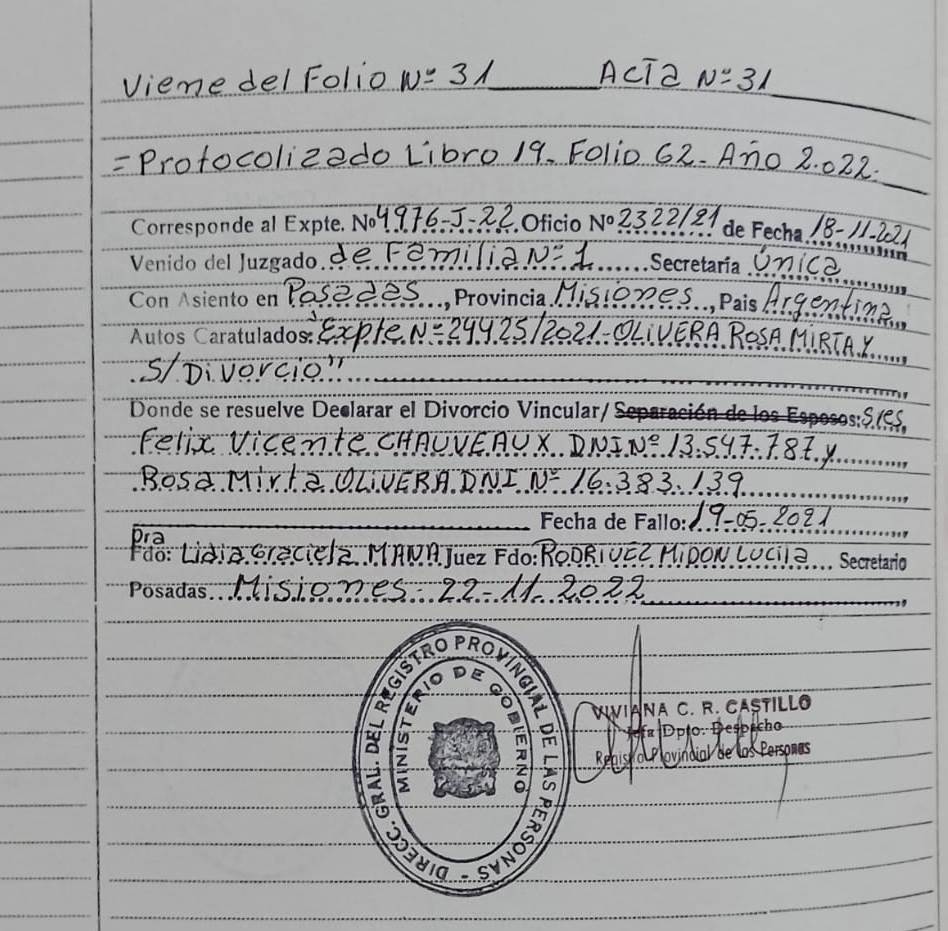 Viene del Folio Nº 31 Acta Nº 31
= Protocolizado Libro 19. Folio 62- Año 2.022.
Corresponde al Expte. Nº 4976-J-22. Oficio Nº 2322/21 de Fecha 18-11-2021
Venido del Juzgado de Familia Nº 1 Secretaría Única
Con Asiento en Posadas, Provincia Misiones, Pais Argentina
Autos Caratulados: "Expte. Nº 29925/2021-OLIVERA ROSA MIRTA Y
S/ Divorcio"
Donde se resuelve Declarar el Divorcio Vincular/ Separación de los Esposos: Sres,
Felix Vicente CHAUVEAUX. DNI Nº 13.547.787. y
Rosa Mirta OLIVERA. DNI Nº 16.383.139
Fecha de Fallo: 19-05-2021
Dra
Fdo: Lidia Graciela MANA Juez Fdo: RODRIUEZ MIDON LUCila Secretario
Posadas. Misiones- 22-11-2022
DIRECC. GRAL. DEL REGISTRO PROVINCIAL DE LAS PERSONAS -
MINISTERIO DE GOBIERNO
VIVIANA C. R. CASTILLO
Jefa Dpto. Despacho
Registro Provincial de las Personas